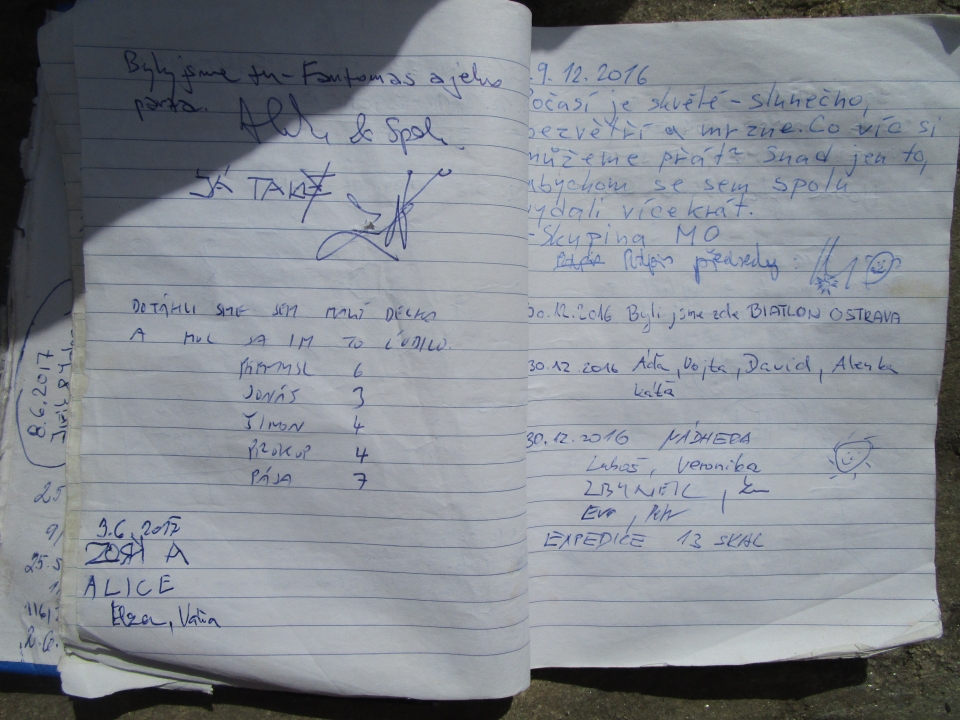 Byli jsme tu - Fantomas a jeho
parta.
& Spol.
JÁ TAKÉ
DOTÁHLI SME SEM MALÝ DĚCKA
A MOC SA IM TO LÚBILO.
PŘEMYSL 6
JONÁŠ 3
ŠIMON 4
PROKOP 4
PÁJA 7
9.6.2017
ALICE
Elza, Váňa
8.6.2017
25
9/
25.5
.9.12.2016
očasí je skvělé - slunečno,
bezvětří a mrzne. Co víc si
můžeme přát? Snad jen to,
abychom se sem spolu
vydali vícekrát.
- Skupina MO
Podpis předsedy:
30.12.2016 Byli jsme zde BIATLON OSTRAVA
30.12.2016 Áďa, Vojta, David, Alenka
Káťa
30.12.2016 NÁDHERA
Luboš, Veronika
ZBYNĚK,
Eva, Petr
EXPEDICE 13 SKAL